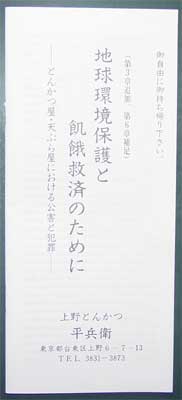 御自由に御持ち帰り下さい。
(第3章追加 第6章補足)
地球環境保護と
飢餓救済のために
――とんかつ屋・天ぷら屋における公害と犯罪――
上野とんかつ
平兵衛
東京都台東区上野6-7-13
TEL 3831-3873